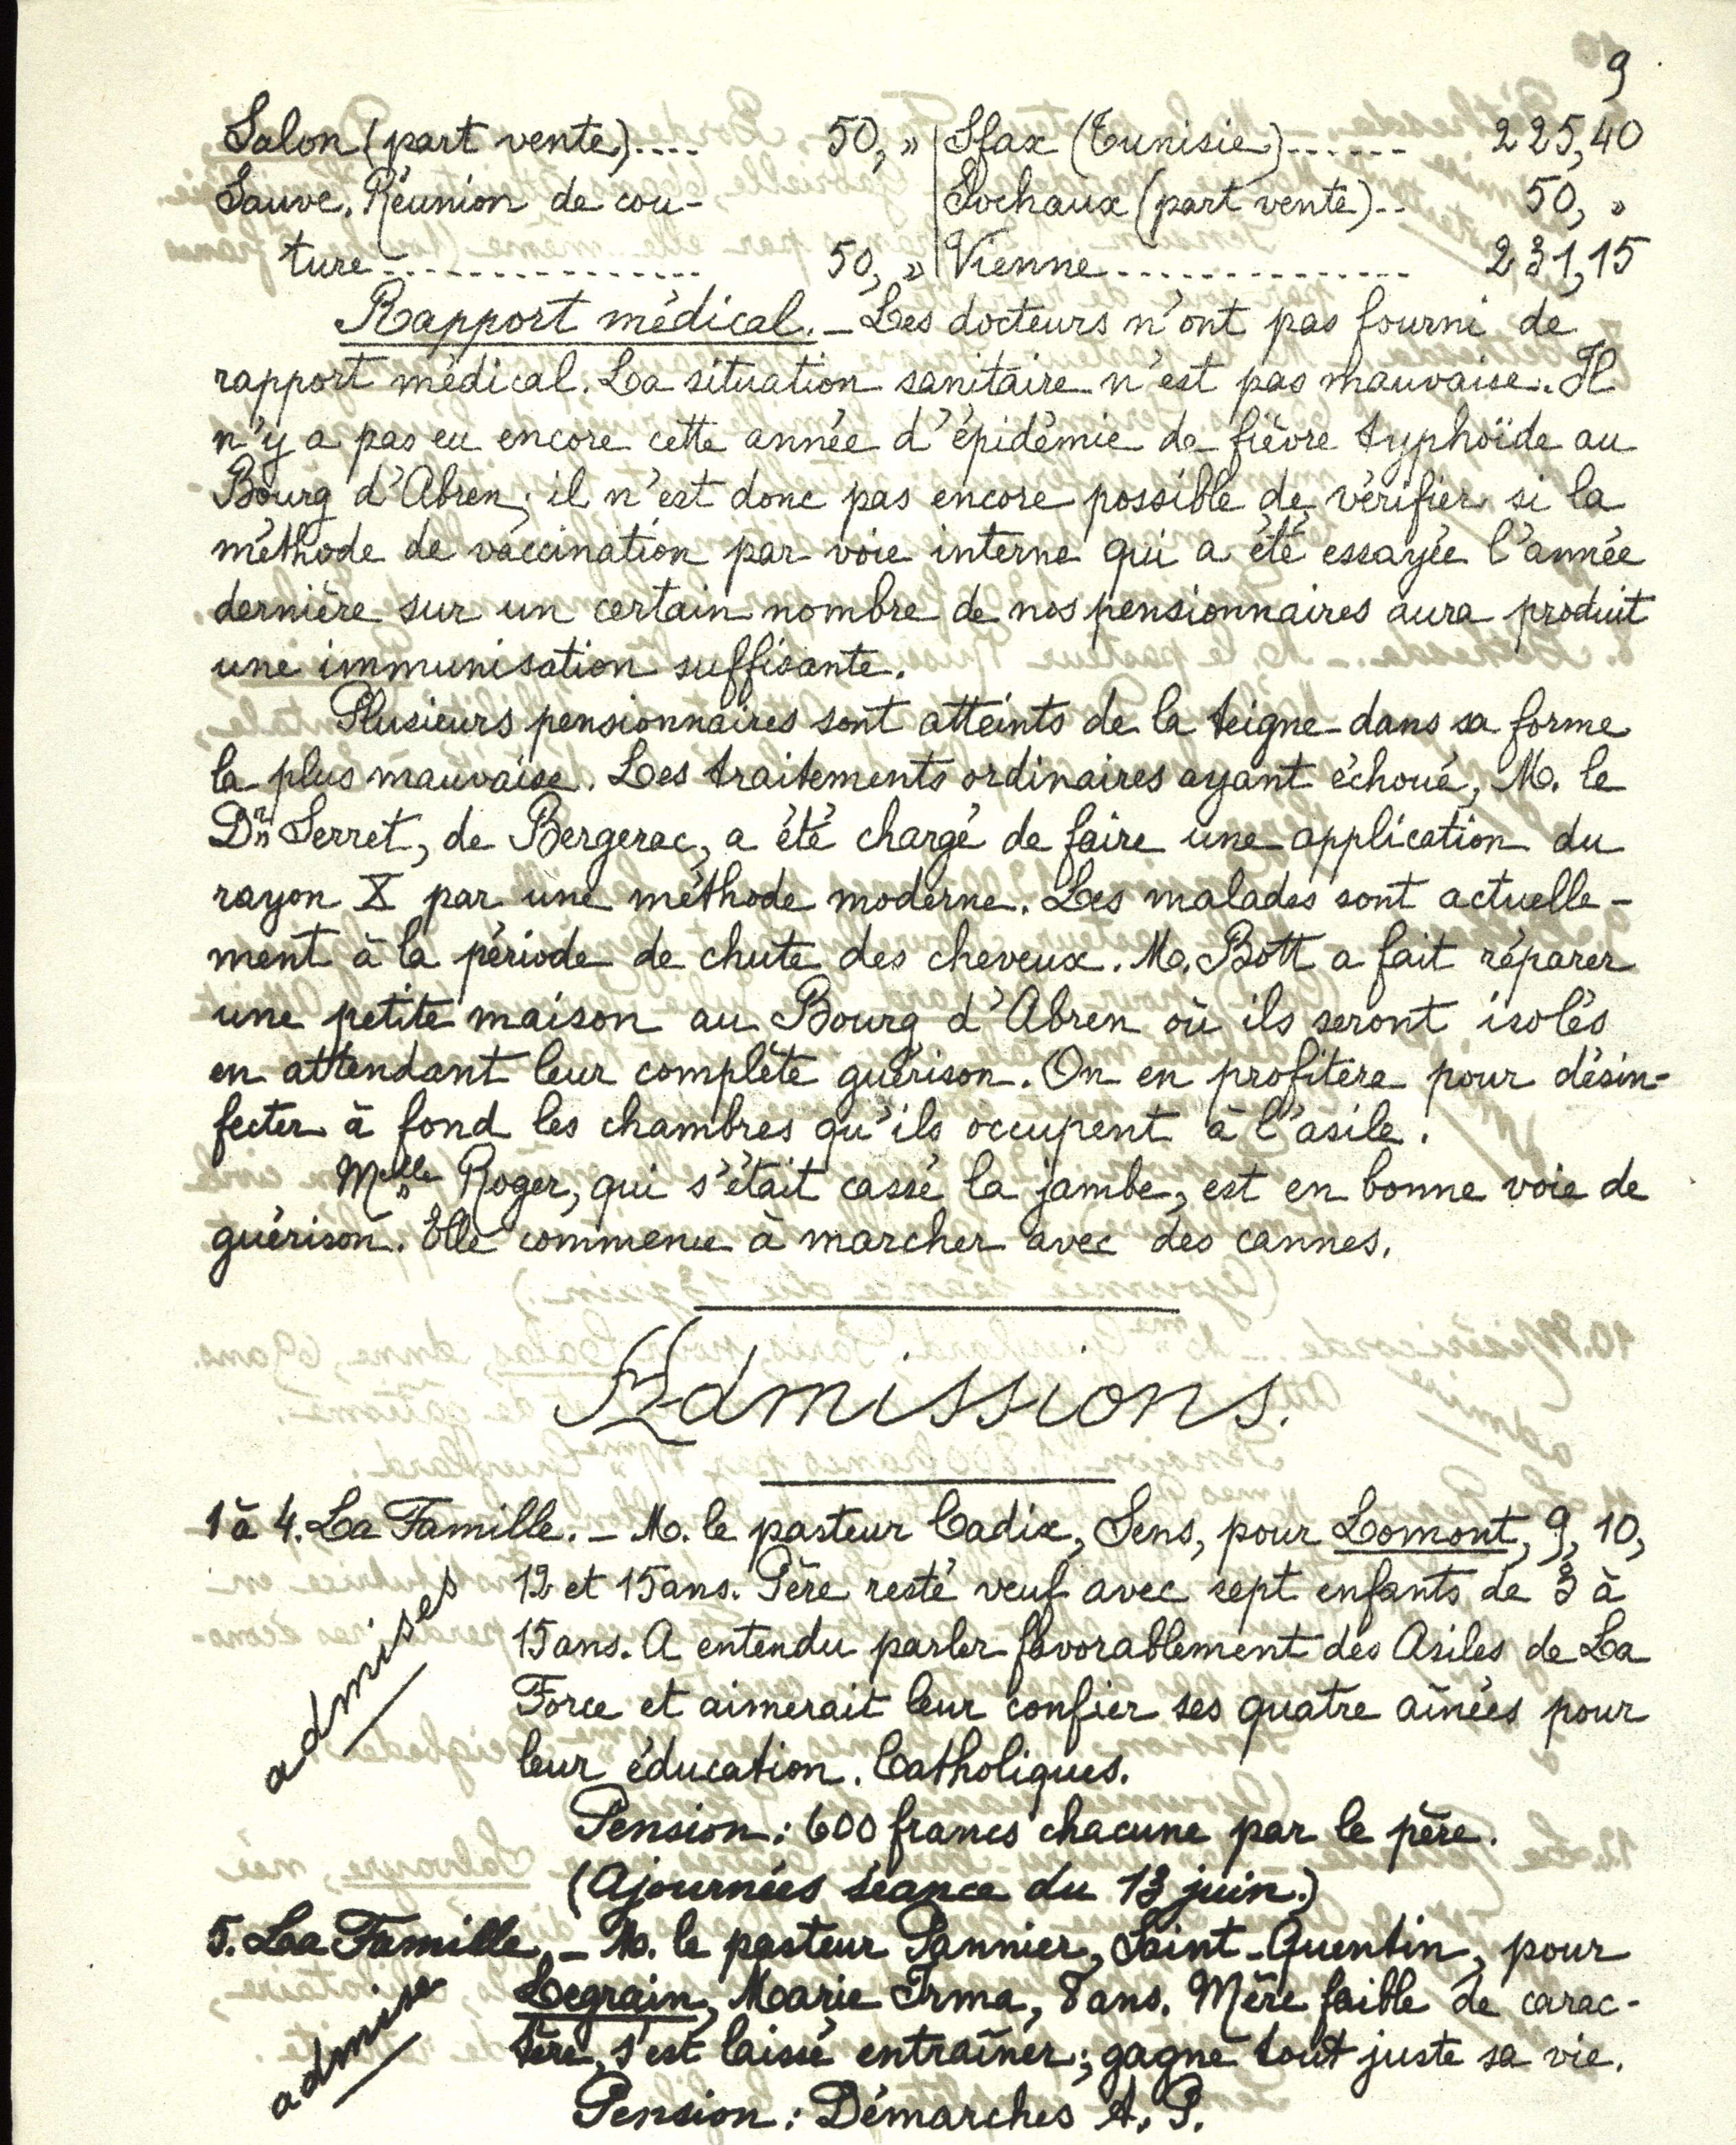 9
Salon (part vente).... 50, » | Sfax (Tunisie)...... 225,40
Sauve. Réunion de cou- | Sochaux (part vente).. 50, »
ture................ 50, » | Vienne.............. 231,15
Rapport médical. – Les docteurs n'ont pas fourni de
rapport médical. La situation sanitaire n'est pas mauvaise. Il
n'y a pas eu encore cette année d'épidémie de fièvre typhoïde au
Bourg d'Abren; il n'est donc pas encore possible de vérifier si la
méthode de vaccination par voie interne qui a été essayée l'année
dernière sur un certain nombre de nos pensionnaires aura produit
une immunisation suffisante.
Plusieurs pensionnaires sont atteints de la teigne dans sa forme
la plus mauvaise. Les traitements ordinaires ayant échoué, M. le
Dr Serret, de Bergerac, a été chargé de faire une application du
rayon X par une méthode moderne. Les malades sont actuelle-
ment à la période de chute des cheveux. M. Bott a fait réparer
une petite maison au Bourg d'Abren où ils seront isolés
en attendant leur complète guérison. On en profitera pour désin-
fecter à fond les chambres qu'ils occupent à l'asile.
Melle Roger, qui s'était cassé la jambe, est en bonne voie de
guérison. Elle commence à marcher avec des cannes.
Admissions.
1 à 4. La Famille. – M. le pasteur Cadix, Sens, pour Lomont, 9, 10,
12 et 15 ans. Père resté veuf avec sept enfants de 3 à
15 ans. A entendu parler favorablement des Asiles de La
Force et aimerait leur confier ses quatre aînées pour
leur éducation. Catholiques.
admises
Pension: 600 francs chacune par le père.
(Ajournées séance du 13 juin.)
5. La Famille. – M. le pasteur Pannier, Saint-Quentin, pour
Legrain, Marie Irma, 8 ans. Mère faible de carac-
tère, s'est laissé entraîner; gagne tout juste sa vie.
admise
Pension: Démarches A. P.